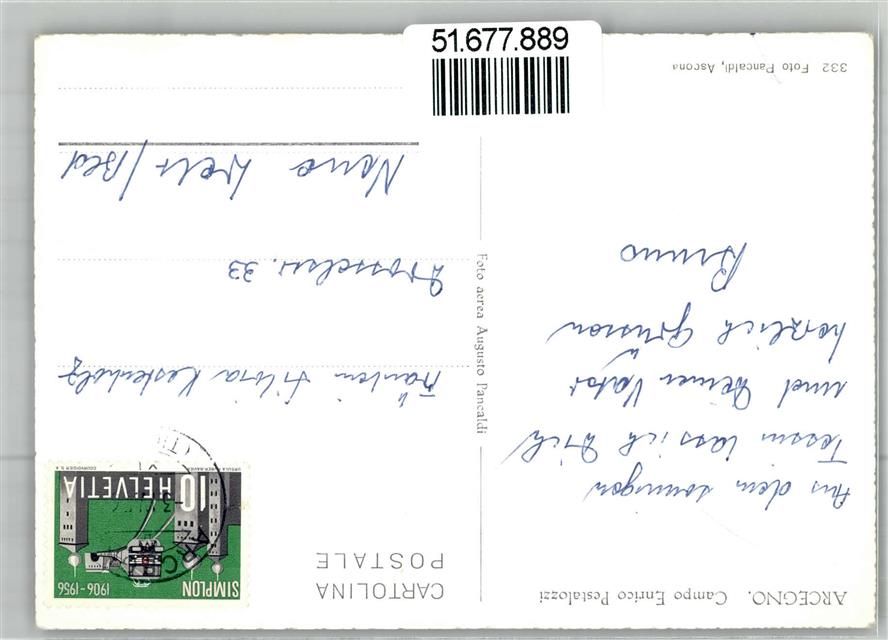 51.677.889
ARCEGNO. Campo Enrico Pestalozzi
Aus dem sonnigen
Tessin lass ich Dich
und Deinen Vater
herzlich Grüssen
Bruno
332 Foto Pancaldi, Ascona
Foto aerea Augusto Pancaldi
CARTOLINA
POSTALE
SIMPLON 1906-1956
10 HELVETIA
COURVOISIER S.A.
Fräulein Silvia Kestenholz
Drosselstr. 33
Neue Welt /